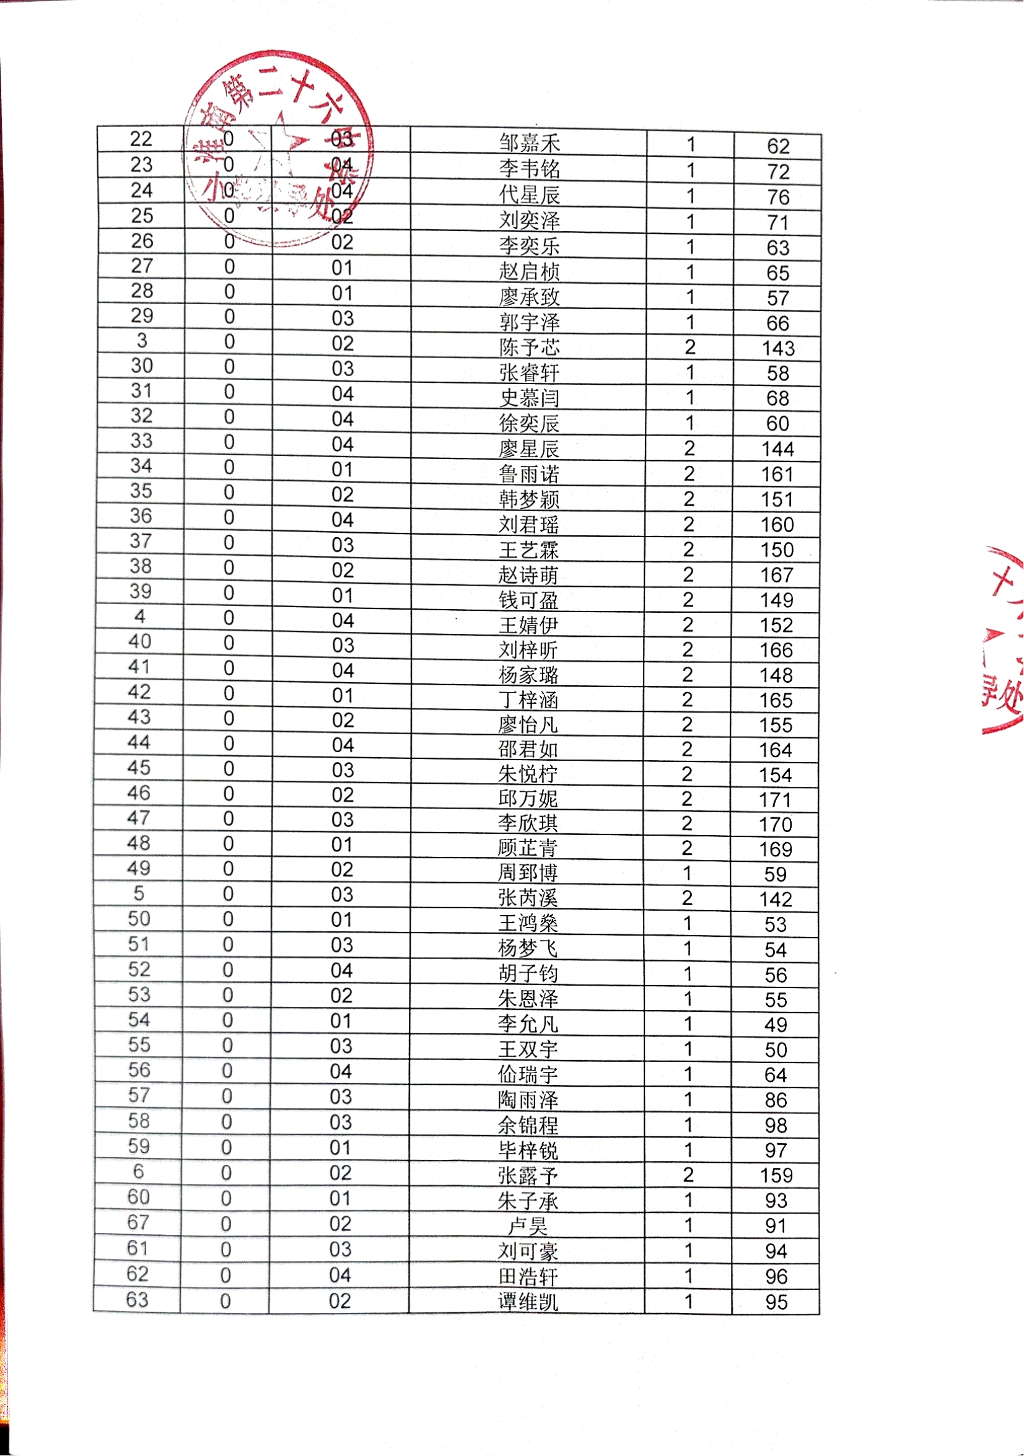 淮南第二十六中
小 处
22 0 03 邹嘉禾 1 62
23 0 04 李韦铭 1 72
24 0 04 代星辰 1 76
25 0 02 刘奕泽 1 71
26 0 02 李奕乐 1 63
27 0 01 赵启桢 1 65
28 0 01 廖承致 1 57
29 0 03 郭宇泽 1 66
3 0 02 陈予芯 2 143
30 0 03 张睿轩 1 58
31 0 04 史慕闫 1 68
32 0 04 徐奕辰 1 60
33 0 04 廖星辰 2 144
34 0 01 鲁雨诺 2 161
35 0 02 韩梦颖 2 151
36 0 04 刘君瑶 2 160
37 0 03 王艺霖 2 150
38 0 02 赵诗萌 2 167
39 0 01 钱可盈 2 149
4 0 04 王婧伊 2 152
40 0 03 刘梓昕 2 166
41 0 04 杨家璐 2 148
42 0 01 丁梓涵 2 165
43 0 02 廖怡凡 2 155
44 0 04 邵君如 2 164
45 0 03 朱悦柠 2 154
46 0 02 邱万妮 2 171
47 0 03 李欣琪 2 170
48 0 01 顾芷青 2 169
49 0 02 周郅博 1 59
5 0 03 张芮溪 2 142
50 0 01 王鸿燊 1 53
51 0 03 杨梦飞 1 54
52 0 04 胡子钧 1 56
53 0 02 朱恩泽 1 55
54 0 01 李允凡 1 49
55 0 03 王双宇 1 50
56 0 04 仙瑞宇 1 64
57 0 03 陶雨泽 1 86
58 0 03 余锦程 1 98
59 0 01 毕梓锐 1 97
6 0 02 张露予 2 159
60 0 01 朱子承 1 93
67 0 02 卢昊 1 91
61 0 03 刘可豪 1 94
62 0 04 田浩轩 1 96
63 0 02 谭维凯 1 95
十
处